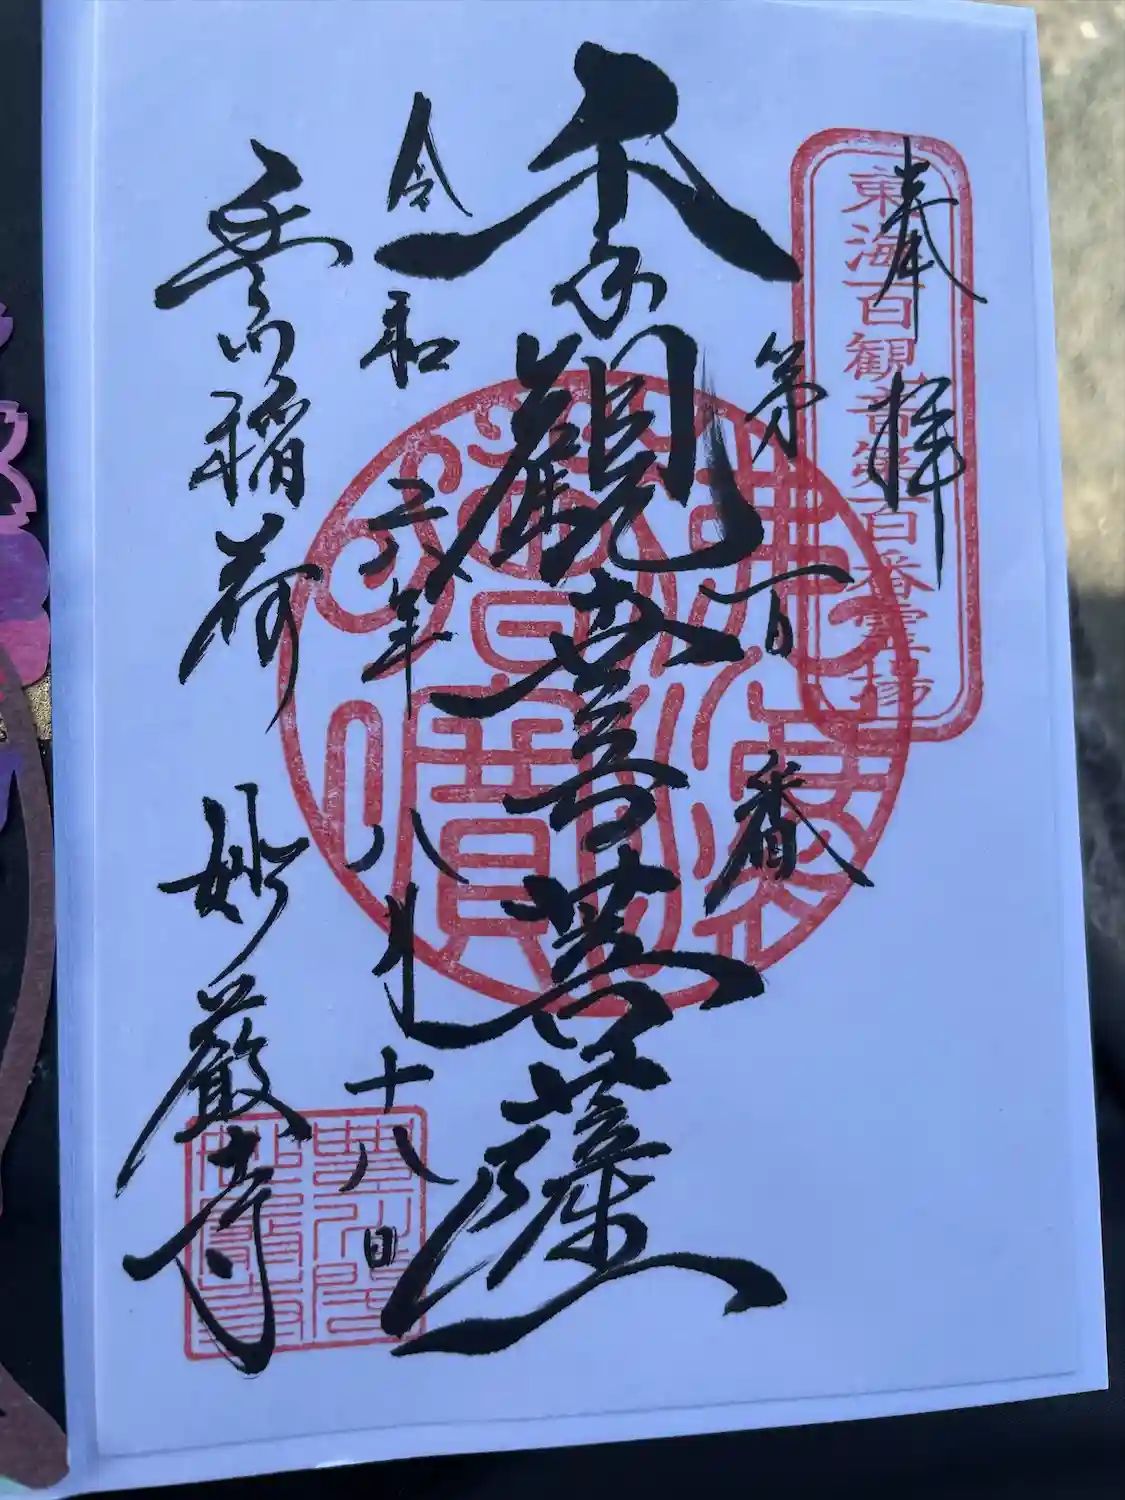 奉拝
東海百観音第百番霊場
第百番
千手觀世音菩薩
令和六年八月十八日
豊川稲荷 妙厳寺